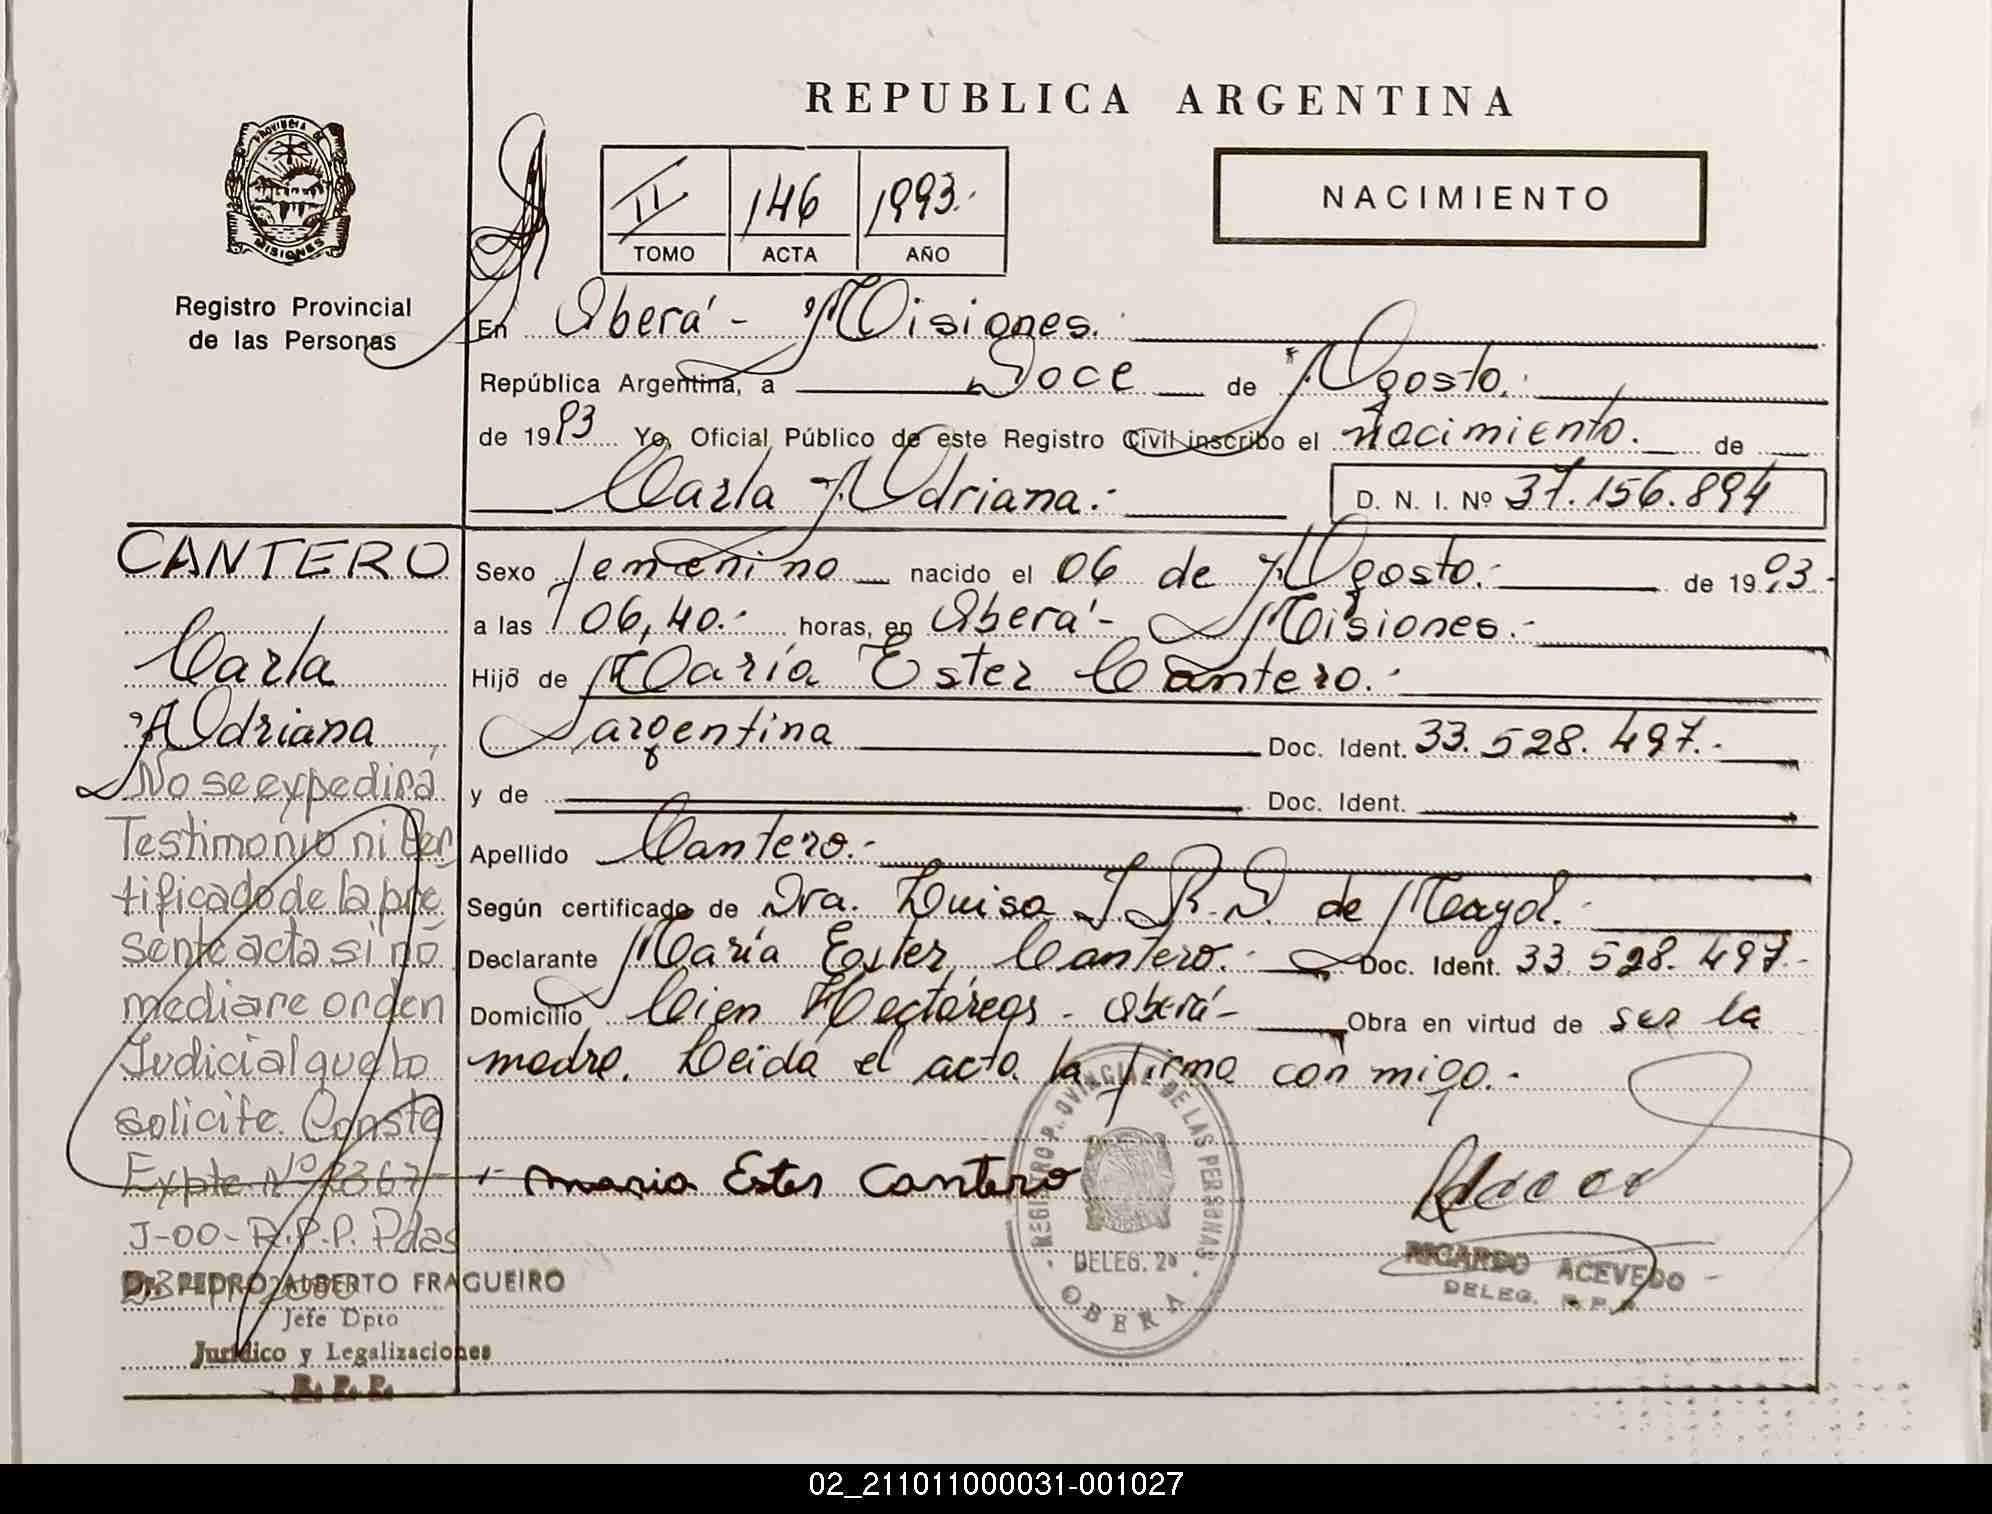 REPUBLICA ARGENTINA
PROVINCIA DE
MISIONES
Registro Provincial
de las Personas
II 146 1993.
TOMO ACTA AÑO
NACIMIENTO
En Oberá - Misiones.
República Argentina, a Doce de Agosto.
de 1993 Yo, Oficial Público de este Registro Civil inscribo el nacimiento. de
Carla Adriana.- D. N. I. Nº 37.156.894
CANTERO
Carla
Adriana
No se expedirá
Testimonio ni Cer
tificado de la pre
sente acta si no
mediare orden
Judicial que lo
solicite. Conste
Expte Nº 2367-
J-00-R.P.P. Pdas
Dr. PEDRO ALBERTO FRAGUEIRO
Jefe Dpto
Jurídico y Legalizaciones
R. P. P.
Sexo femenino nacido el 06 de Agosto.- de 1993.-
a las 06,40.- horas, en Oberá - Misiones.-
Hijo de María Ester Cantero.-
argentina Doc. Ident. 33.528.497.-
y de Doc. Ident.
Apellido Cantero.-
Según certificado de Dra. Luisa J. R. D. de Mayol.-
Declarante María Ester Cantero.- Doc. Ident. 33.528.497.-
Domicilio Cien Hectáreas - Oberá - Obra en virtud de ser la
madre. Leida el acta la firma con migo.-
maria Ester Cantero
REGISTRO PROVINCIAL DE LAS PERSONAS
DELEG. 2ª
OBERA
RICARDO ACEVEDO
DELEG. R.P.P.
02_211011000031-001027